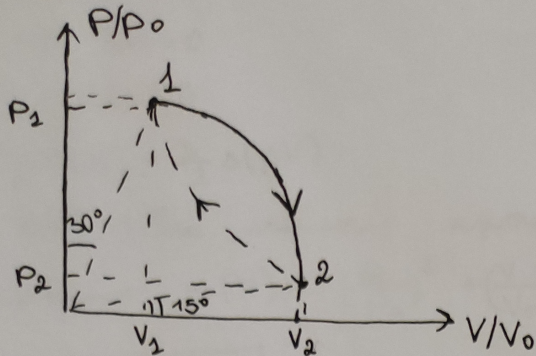 P/p0
1
P1
30°
P2
2
15°
V1
V2
V/V0